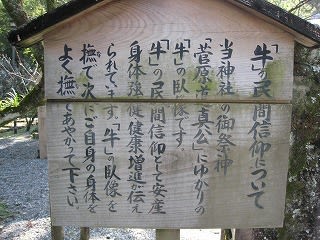 「牛」の民間信仰について
当神社の御祭神
「菅原道真公」にゆかりの
「牛」の臥像です。
「牛」の民間信仰として安産
身体強健健康増進が伝え
られてます。「牛」の臥像を
撫で次にご自身の身体を
よく撫であやかって下さい。